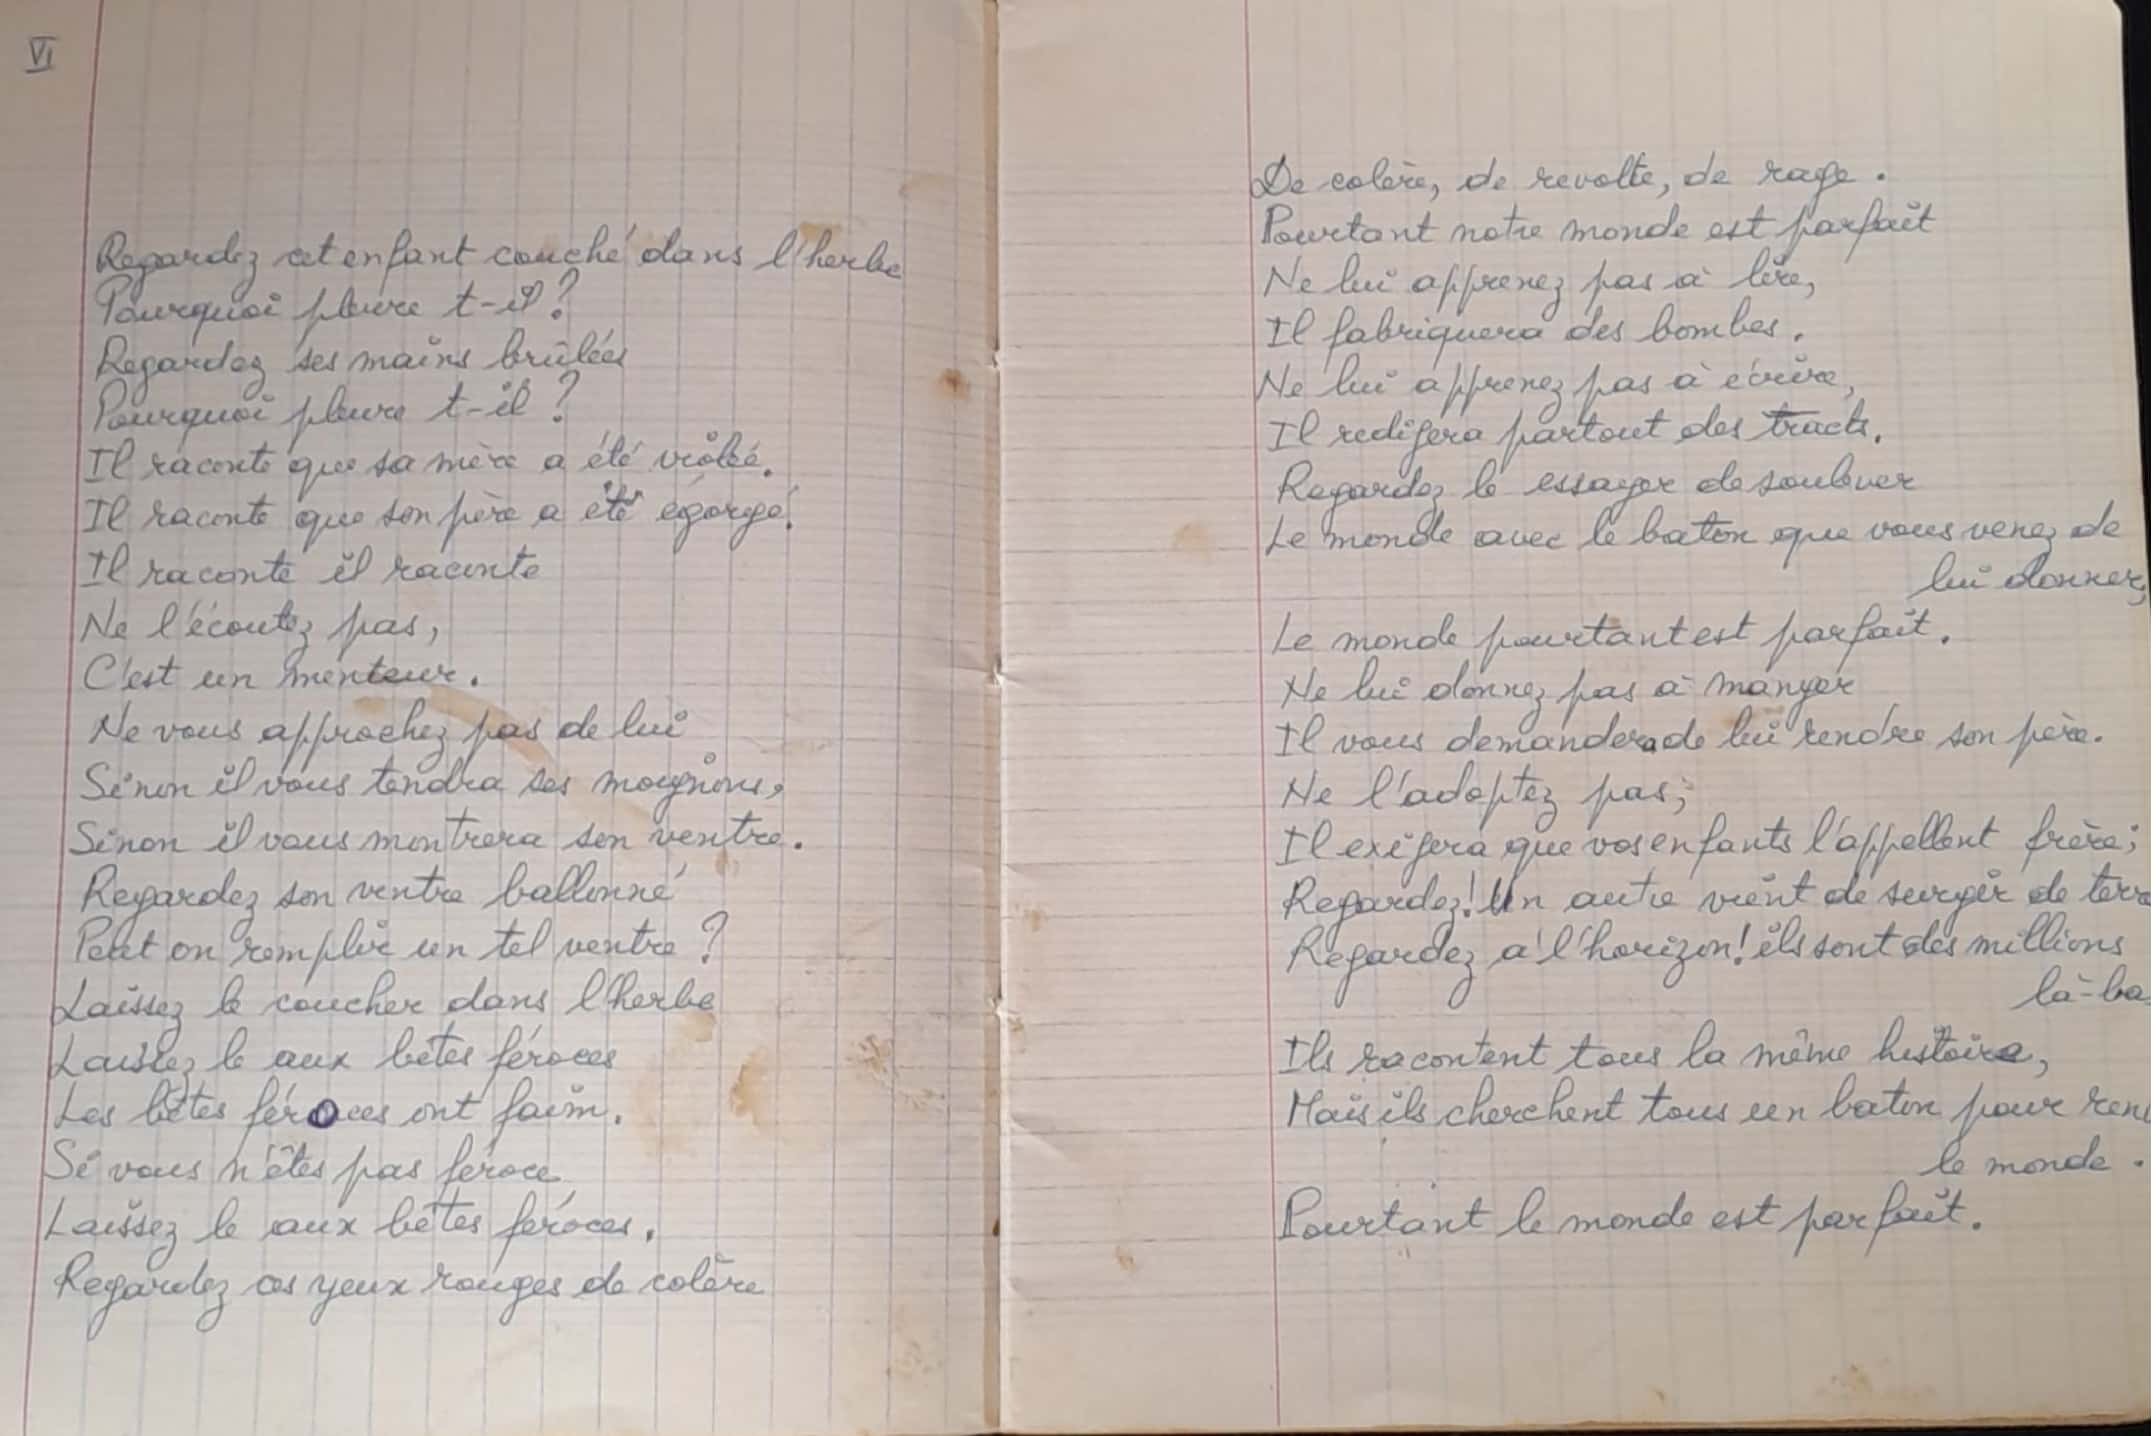 VI
Regardez cet enfant couché dans l'herbe
Pourquoi pleure t-il?
Regardez ses mains brûlées
Pourquoi pleure t-il?
Il raconte que sa mère a été violée.
Il raconte que son père a été égorgé.
Il raconte il raconte
Ne l'écoutez pas,
C'est un menteur.
Ne vous approchez pas de lui
Sinon il vous tendra ses moignons,
Sinon il vous montrera son ventre.
Regardez son ventre ballonné
Peut on remplir un tel ventre?
Laissez le coucher dans l'herbe
Laissez le aux bêtes féroces
Les bêtes féroces ont faim.
Si vous n'êtes pas féroce
Laissez le aux bêtes féroces.
Regardez ces yeux rouges de colère
De colère, de revolte, de rage.
Pourtant notre monde est parfait
Ne lui apprenez pas à lire,
Il fabriquera des bombes.
Ne lui apprenez pas à écrire,
Il redigera partout des tracts.
Regardez le essayer de soulever
Le monde avec le baton que vous venez de
lui donner,
Le monde pourtant est parfait.
Ne lui donnez pas à manger
Il vous demandera de lui rendre son père.
Ne l'adoptez pas;
Il exigera que vos enfants l'appellent frère;
Regardez! Un autre vient de surgir de terre
Regardez à l'horizon! ils sont des millions
là-ba
Ils racontent tous la même histoire,
Mais ils cherchent tous un baton pour ren
le monde.
Pourtant le monde est parfait.